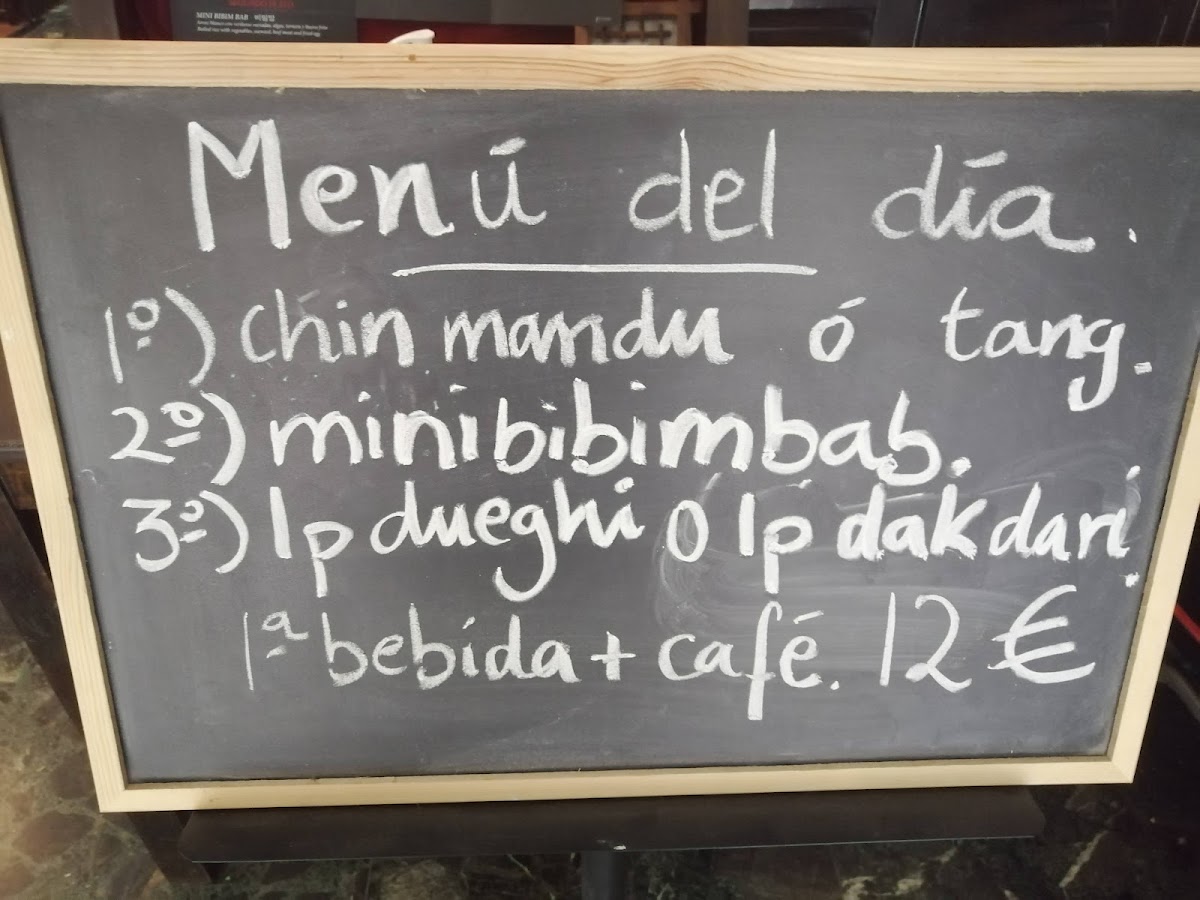 MINI BIBIM BAB 비빔밥
Menú del día.
1º) chin mandu ó tang.
2º) minibibimbab.
3º) 1p dueghi o 1p dakdari.
1ª bebida + café. 12 €